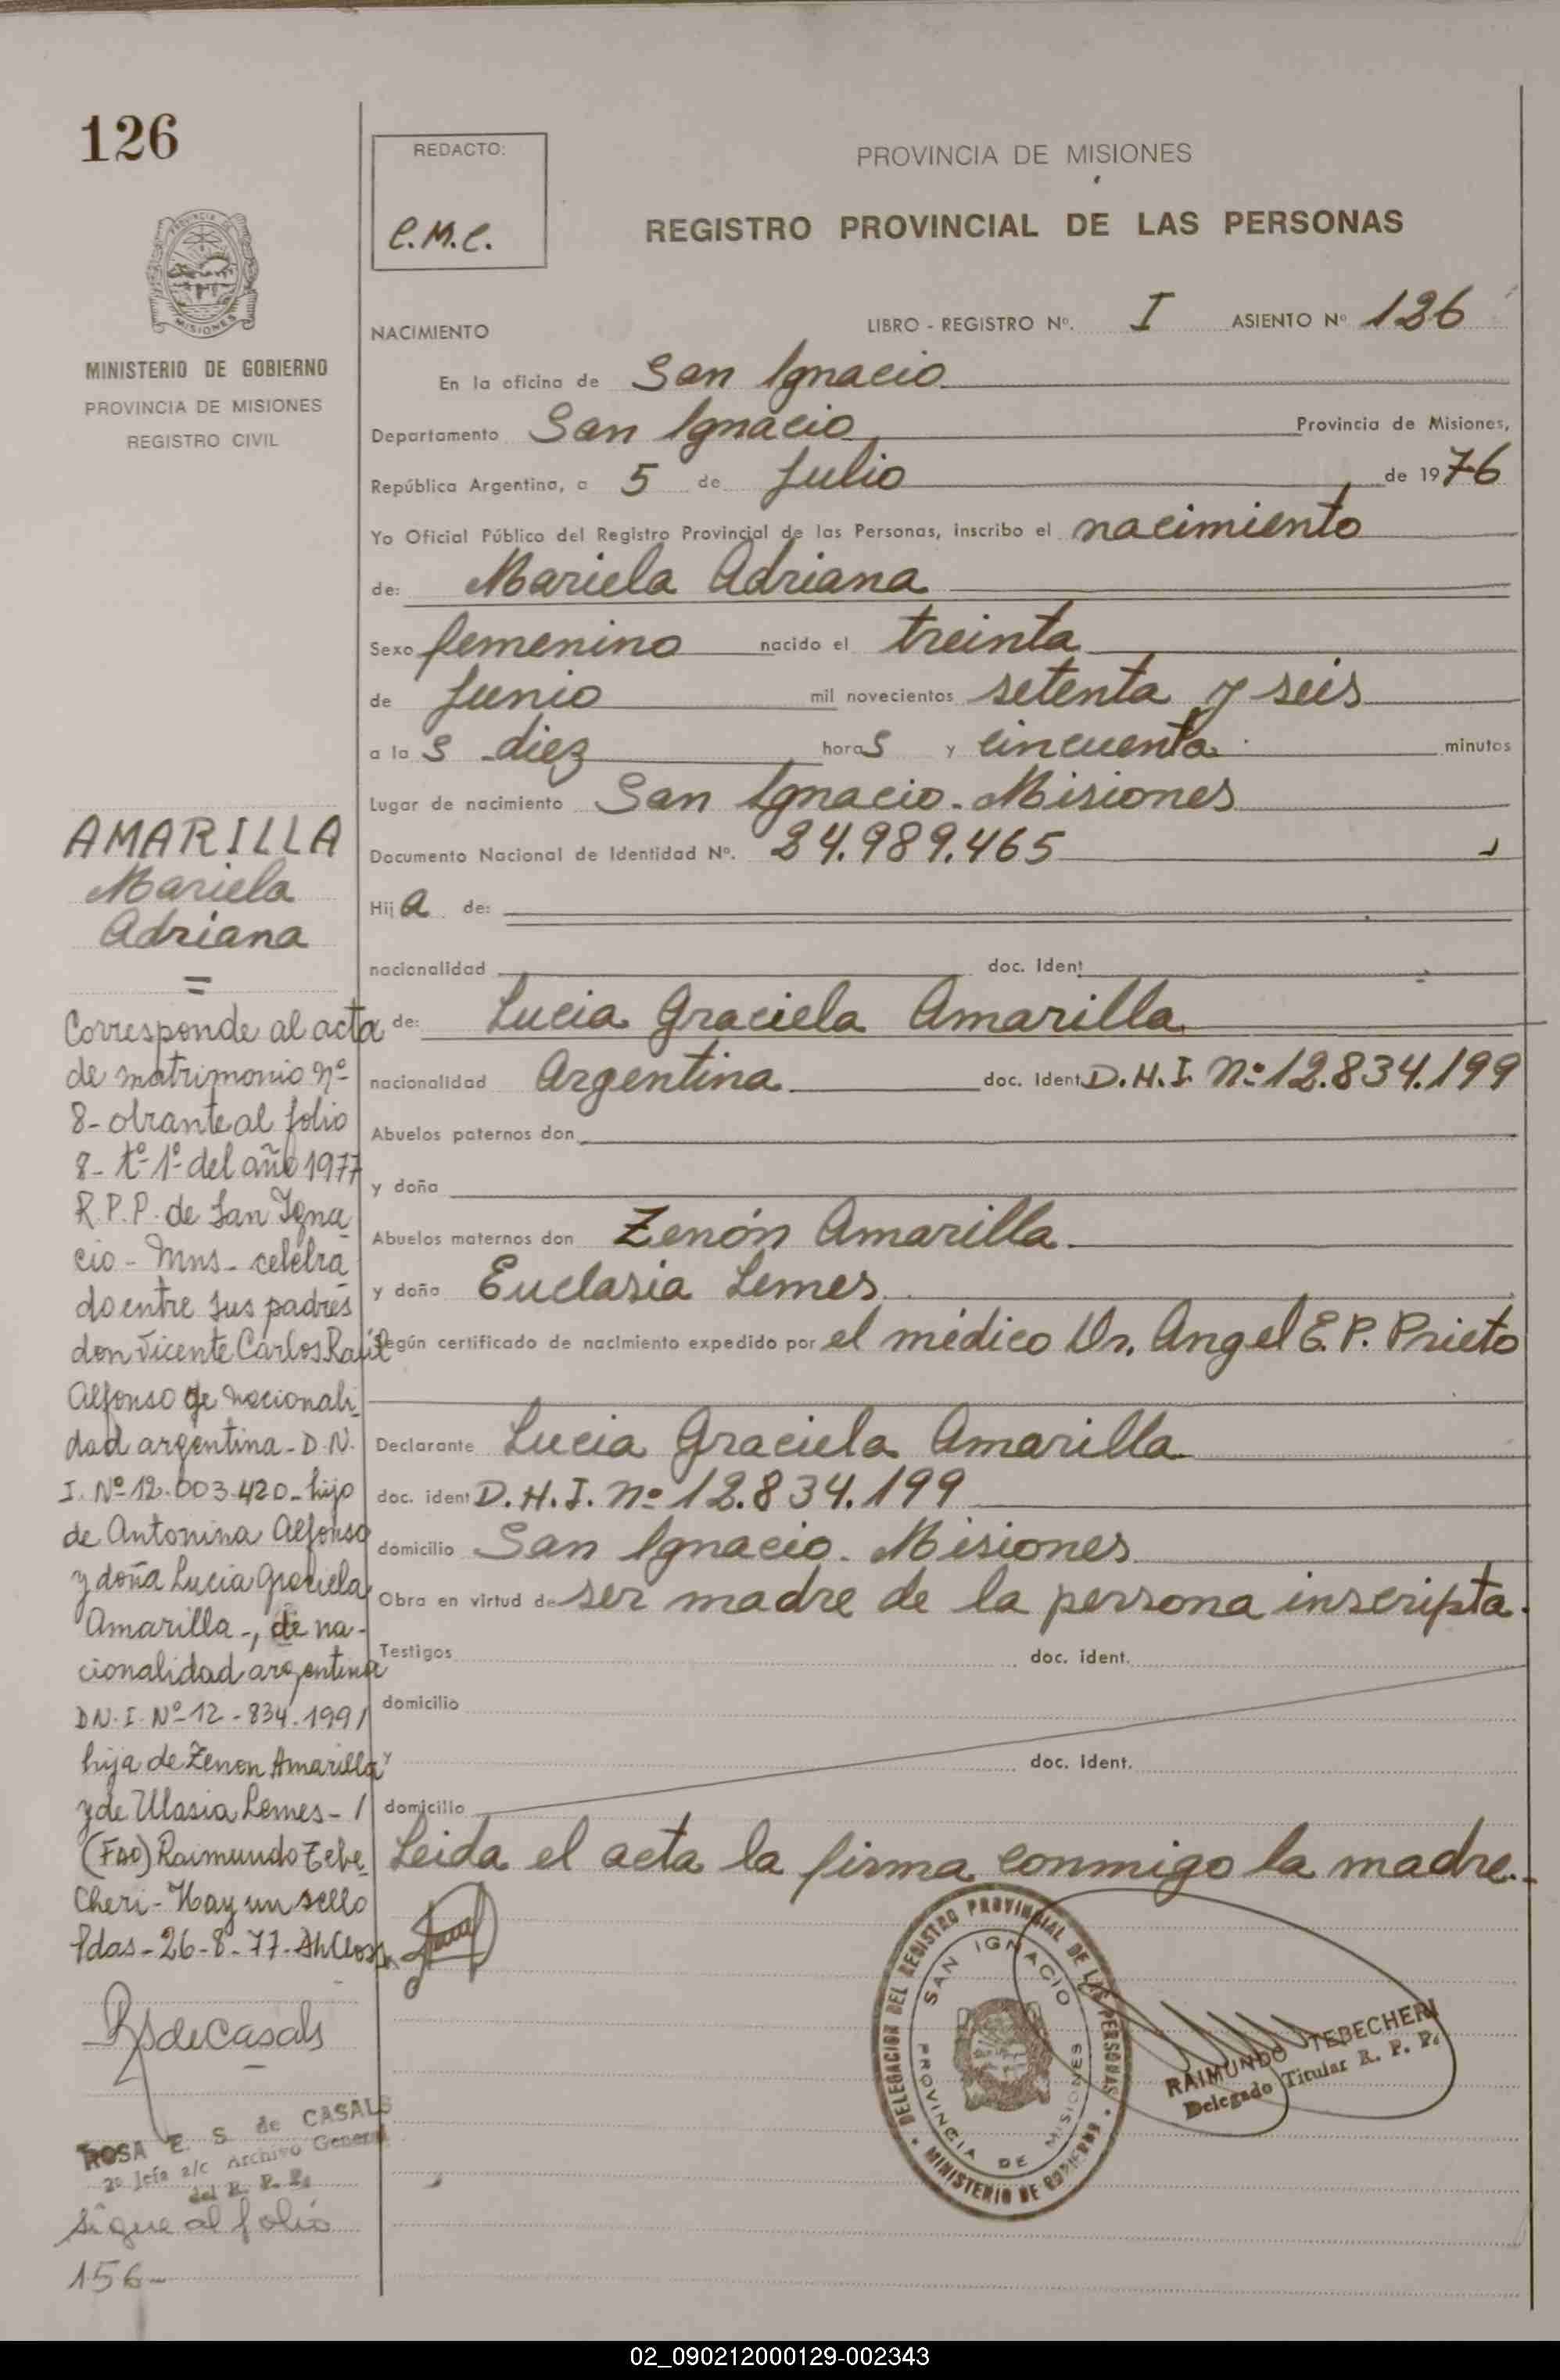 126
REDACTO:
C.M.C.
PROVINCIA DE MISIONES
REGISTRO PROVINCIAL DE LAS PERSONAS
MISIONES
MINISTERIO DE GOBIERNO
PROVINCIA DE MISIONES
REGISTRO CIVIL
NACIMIENTO
LIBRO - REGISTRO Nº. I ASIENTO Nº 126
En la oficina de San Ignacio
Departamento San Ignacio Provincia de Misiones,
República Argentina, a 5 de Julio de 1976
Yo Oficial Público del Registro Provincial de las Personas, inscribo el nacimiento
de: Mariela Adriana
Sexo femenino nacido el treinta
de Junio mil novecientos setenta y seis
a las diez horas y cincuenta minutos
Lugar de nacimiento San Ignacio. Misiones
Documento Nacional de Identidad Nº. 24.989.465
Hija de:
nacionalidad doc. Ident
de: Lucia Graciela Amarilla
nacionalidad Argentina doc. Ident. D.N.I. Nº 12.834.199
Abuelos paternos don
y doña
Abuelos maternos don Zenón Amarilla
y doña Euclasia Lemes
Según certificado de nacimiento expedido por el médico Dr. Angel E.P. Prieto
Declarante Lucia Graciela Amarilla
doc. ident D.N.I. nº 12.834.199
domicilio San Ignacio. Misiones
Obra en virtud de ser madre de la persona inscripta.
Testigos doc. ident.
domicilio
y doc. ident.
domicilio
Leida el acta la firma conmigo la madre.
DELEGACION DEL REGISTRO PROVINCIAL DE LAS PERSONAS
MINISTERIO DE GOBIERNO
SAN IGNACIO
PROVINCIA DE MISIONES
RAIMUNDO TEBECHERI
Delegado Titular R. P. P.
AMARILLA
Mariela
Adriana
=
Corresponde al acta
de matrimonio nº
8- obrante al folio
8- tº 1º del año 1977
R.P.P. de San Igna
cio - Mns - celebra
do entre sus padres
don Vicente Carlos Raúl
Alfonso de nacionali
dad argentina - D.N.
I. Nº 12.003.420 - hijo
de Antonina Alfonso
y doña Lucia Graciela
Amarilla -, de na-
cionalidad argentina
D.N.I. Nº 12-834.199/
hija de Zenon Amarilla
y de Ulasia Lemes - /
(Fdo) Raimundo Tebe
cheri - Hay un sello
Pdas - 26-8-77-
RSdeCasals
ROSA E. S. de CASALS
2º Jefa a/c Archivo General
del R. P. P.
Sigue al folio
156-
02_090212000129-002343